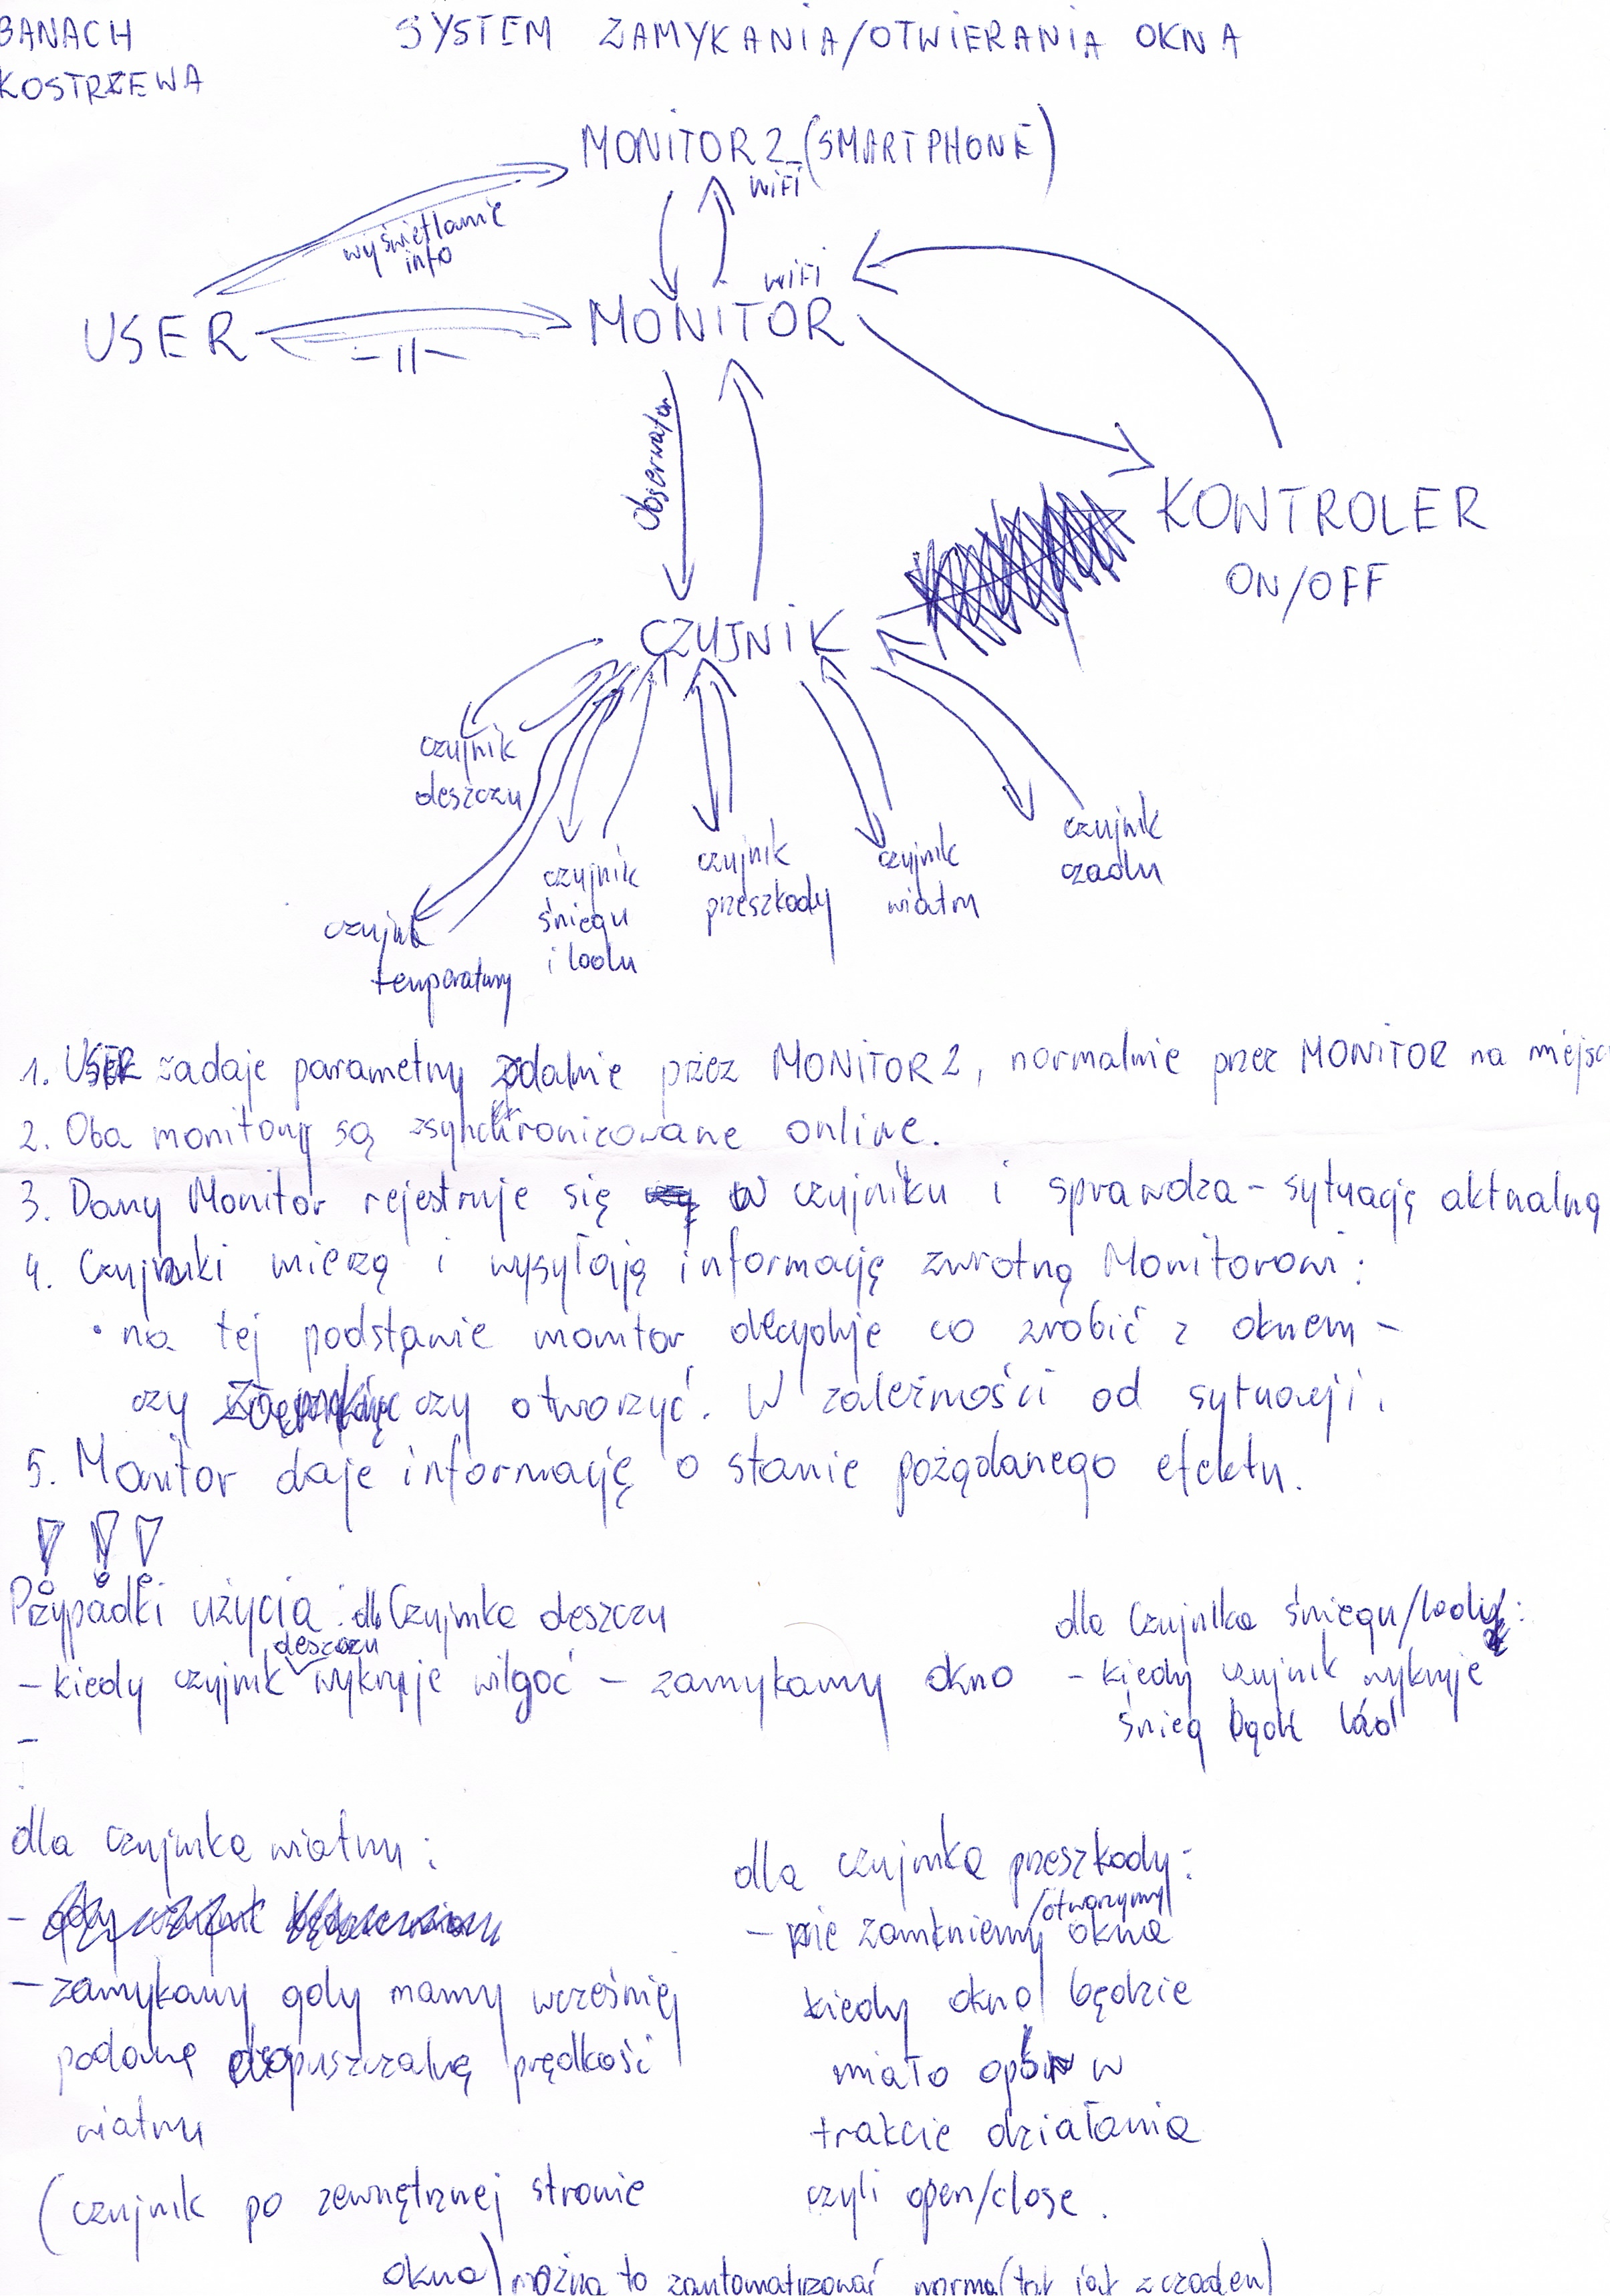 BANACH
KOSTRZEWA
SYSTEM ZAMYKANIA/OTWIERANIA OKNA
MONITOR 2 (SMARTPHONE)
WIFI
wyświetlanie
info
WIFI
USER
MONITOR
-||-
Obserwator
KONTROLER
ON/OFF
CZUJNIK
czujnik
deszczu
czujnik
czadu
czujnik
śniegu
i lodu
czujnik
przeszkody
czujnik
wiatru
czujnik
temperatury
1. USER zadaje parametry zdalnie przez MONITOR 2, normalnie przez MONITOR na miejsc
2. Oba monitory są zsynchronizowane online.
3. Dany Monitor rejestruje się w czujniku i sprawdza - sytuację aktualną
4. Czujniki mierzą i wysyłają informację zwrotną Monitorowi:
• na tej podstawie monitor decyduje co zrobić z oknem -
czy czy otworzyć. W zależności od sytuacji.
5. Monitor daje informację o stanie pożądanego efektu.
!!!
Przypadki użycia: dla Czujnika deszczu
- kiedy czujnik deszczu wykryje wilgoć - zamykamy okno
-
dla Czujnika śniegu/lodu:
- kiedy czujnik wykryje
śnieg bądź lód
dla czujnika wiatru:
- zamykamy gdy mamy wcześniej
podaną dopuszczalną prędkość
wiatru
(czujnik po zewnętrznej stronie
okna) można to zautomatyzować norma(tak jak z czadem)
dla czujnika przeszkody:
- nie zamkniemy/otworzymy okna
kiedy okno będzie
miało opór w
trakcie działania
czyli open/close.